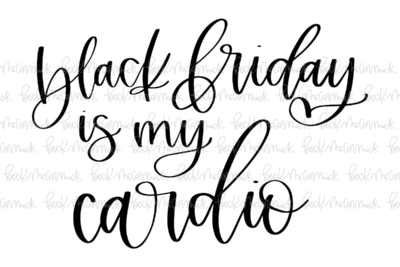 black friday
is my
cardio